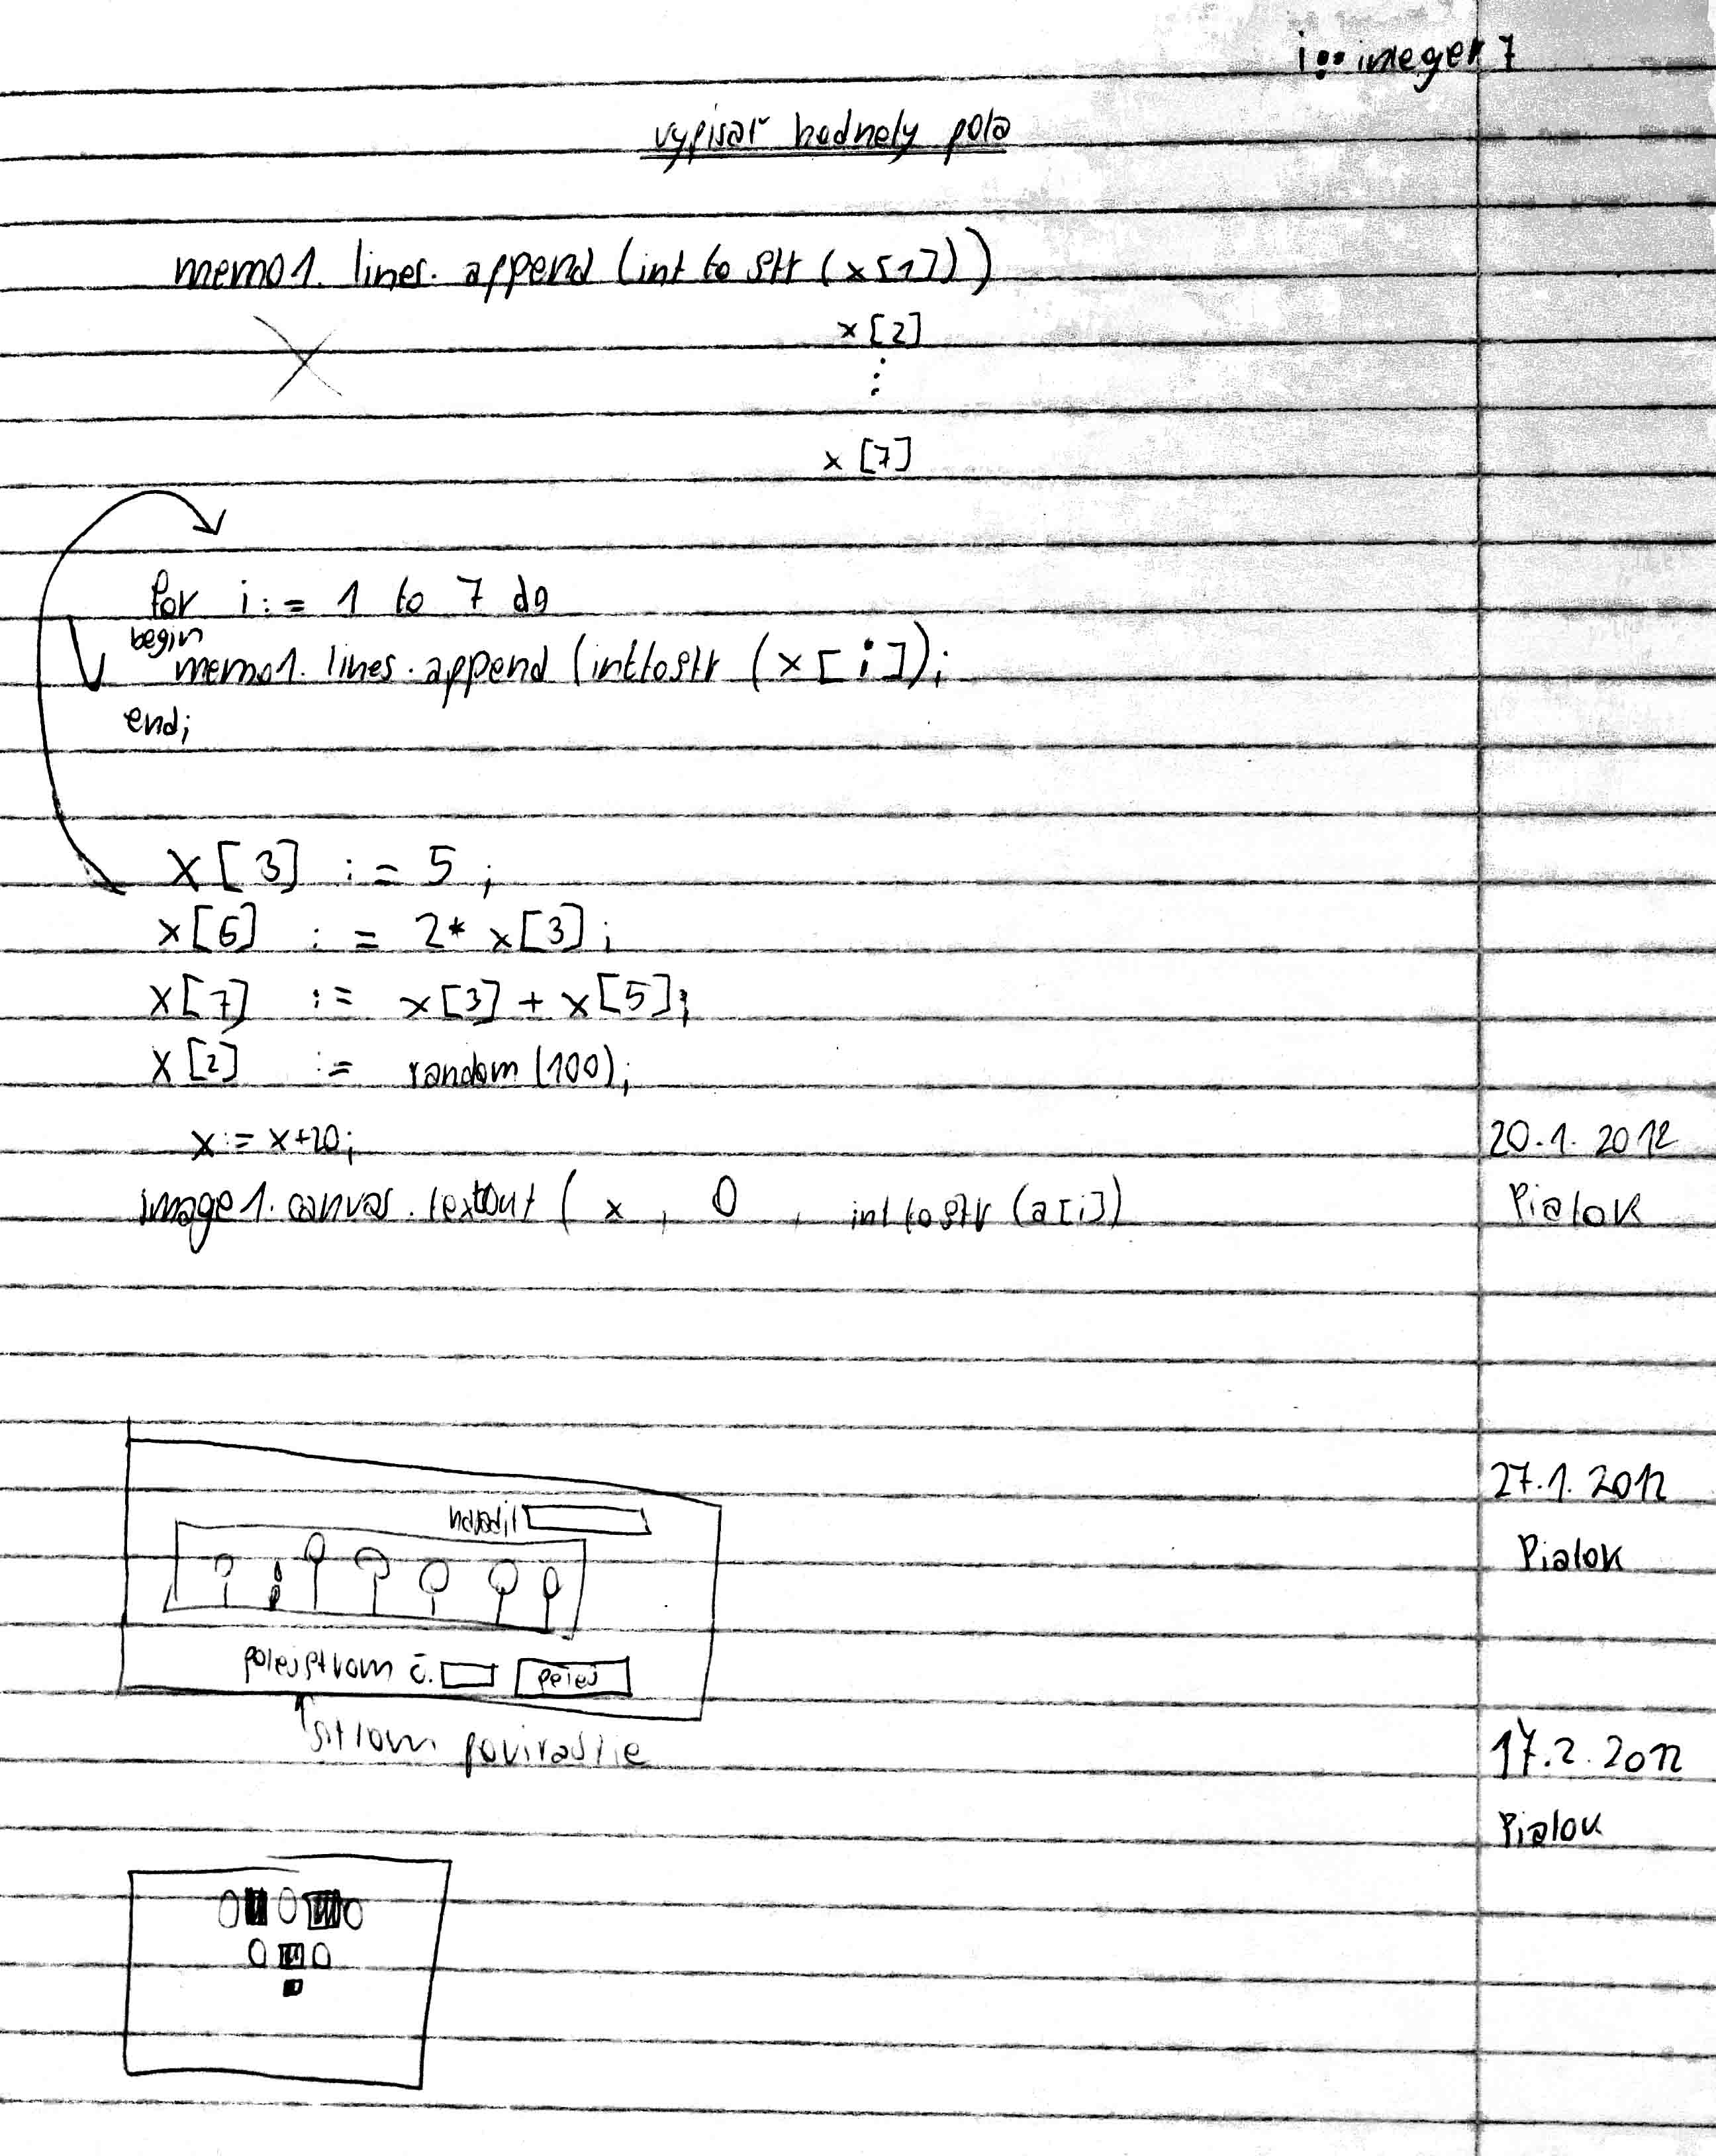 i: integer 7
vypisať hodnoty pola
memo1. lines. append (int to str (x[1]))
x[2]
⋮
x[7]
for i := 1 to 7 do
begin
memo1. lines. append (inttostr (x[i]);
end;
x[3] := 5;
x[6] := 2* x[3];
x[7] := x[3] + x[5];
x[2] := random (100);
x := x+20;
20.1. 2012
image1. canvas. textout ( x , 0 , int to str (a[i])
Pialok
27.1. 2012
Pialok
polej strom č. polej
strom povirastie
17.2. 2012
Pialok